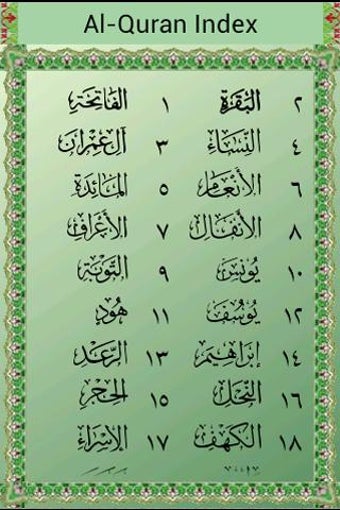 Al-Quran Index
٢ البَقَرَة ١ الفَاتِحَة
٤ النِّسَاء ٣ آل عِمْرَان
٦ الأَنْعَام ٥ المَائِدَة
٨ الأَنْفَال ٧ الأَعْرَاف
١٠ يُونُسَ ٩ التَّوْبَة
١٢ يُوسُف ١١ هُود
١٤ إِبْرَاهِيم ١٣ الرَّعْد
١٦ النَّحْل ١٥ الحِجْر
١٨ الكَهْف ١٧ الإِسْرَاء